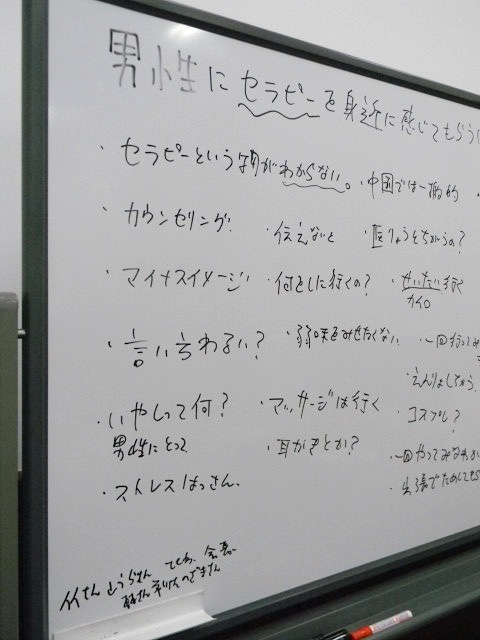 男性にセラピーを身近に感じてもらうに
・セラピーという物がわからない。
・中国では一般的
・カウンセリング
・伝えないと
・医りょうとちがうの?
・マイナスイメージ
・何をしに行くの?
・せいたい行く
カイロ
・言いちわるい?
・弱味をみせたくない
・一回行ってみ
・えんりょしちゃう
・いやしって何?
男性にとって
・マッサージは行く
・コスプレ?
・耳かきとか?
・一回やってみなわか
・ストレスはっさん。
・出張でためしても